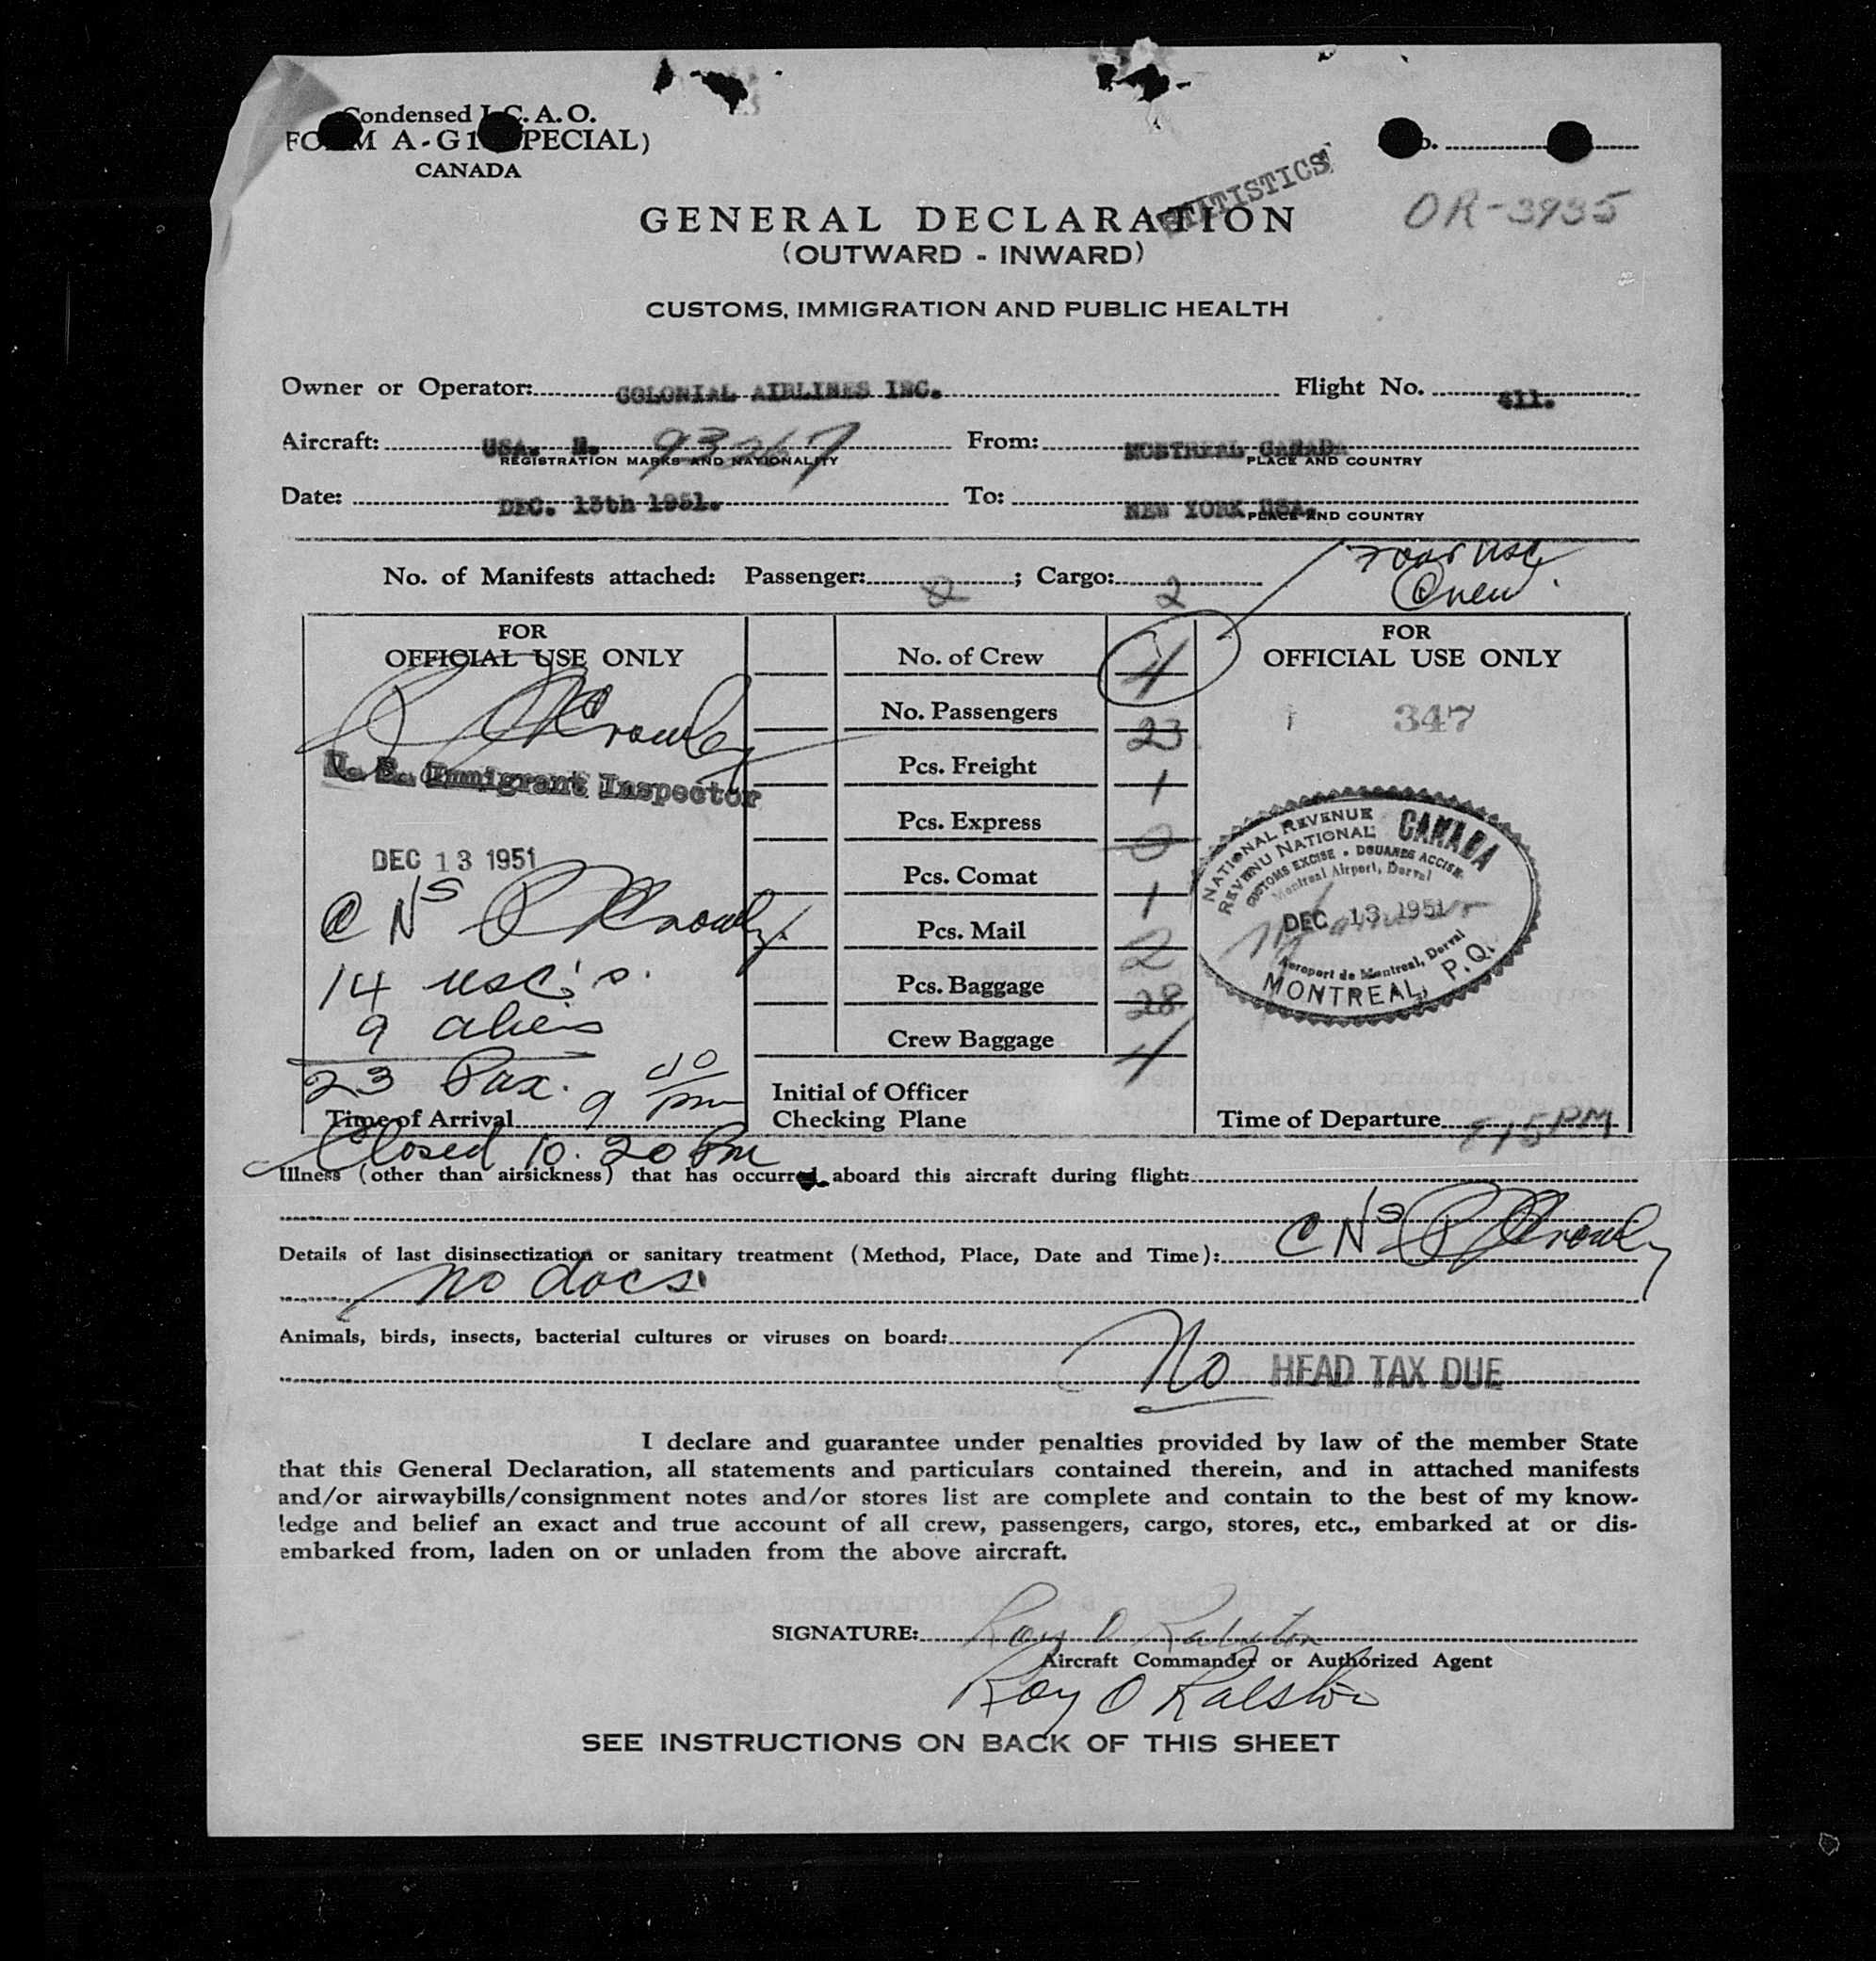 Condensed I.C.A.O.
FORM A-G1 (SPECIAL)
CANADA
No.
STATISTICS
OR-3935
GENERAL DECLARATION
(OUTWARD - INWARD)
CUSTOMS, IMMIGRATION AND PUBLIC HEALTH
Owner or Operator: COLONIAL AIRLINES INC. Flight No. 411.
Aircraft: USA. N. 93267 From: MONTREAL CANADA
REGISTRATION MARKS AND NATIONALITY PLACE AND COUNTRY
Date: DEC. 13th 1951. To: NEW YORK USA.
PLACE AND COUNTRY
No. of Manifests attached: Passenger: 2 ; Cargo: 2
Four USC
Crew.
FOR
OFFICIAL USE ONLY
U. S. Immigrant Inspector
DEC 13 1951
14 USC's.
9 aliens
23 Pax.
Time of Arrival 9 40 pm
Closed 10.20 Pm
No. of Crew 4
No. Passengers 23
Pcs. Freight 1
Pcs. Express 0
Pcs. Comat 1
Pcs. Mail 2
Pcs. Baggage 28
Crew Baggage 4
Initial of Officer
Checking Plane
FOR
OFFICIAL USE ONLY
347
NATIONAL REVENUE CANADA
REVENU NATIONAL
CUSTOMS EXCISE • DOUANES ACCISE
Montreal Airport, Dorval
DEC 13 1951
Aeroport de Montreal, Dorval
MONTREAL, P.Q.
Time of Departure 815PM
Illness (other than airsickness) that has occurred aboard this aircraft during flight:
Details of last disinsectization or sanitary treatment (Method, Place, Date and Time):
no docs
Animals, birds, insects, bacterial cultures or viruses on board:
No HEAD TAX DUE
I declare and guarantee under penalties provided by law of the member State
that this General Declaration, all statements and particulars contained therein, and in attached manifests
and/or airwaybills/consignment notes and/or stores list are complete and contain to the best of my know-
ledge and belief an exact and true account of all crew, passengers, cargo, stores, etc., embarked at or dis-
embarked from, laden on or unladen from the above aircraft.
SIGNATURE: Roy O Ralston
Aircraft Commander or Authorized Agent
Roy O Ralston
SEE INSTRUCTIONS ON BACK OF THIS SHEET